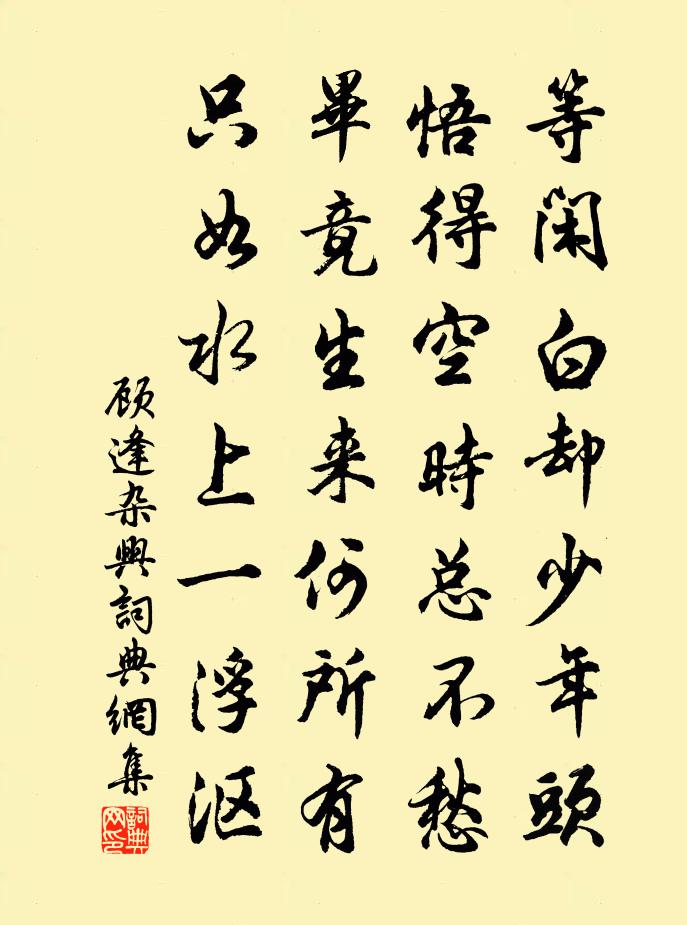 等闲白却少年頭
悟得空時总不愁
畢竟生来何所有
只如水上一浮沤
顾逢杂興詞典網集
詞典网印